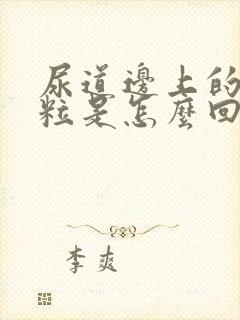 尿道邊上的
粒是怎麼回
李爽